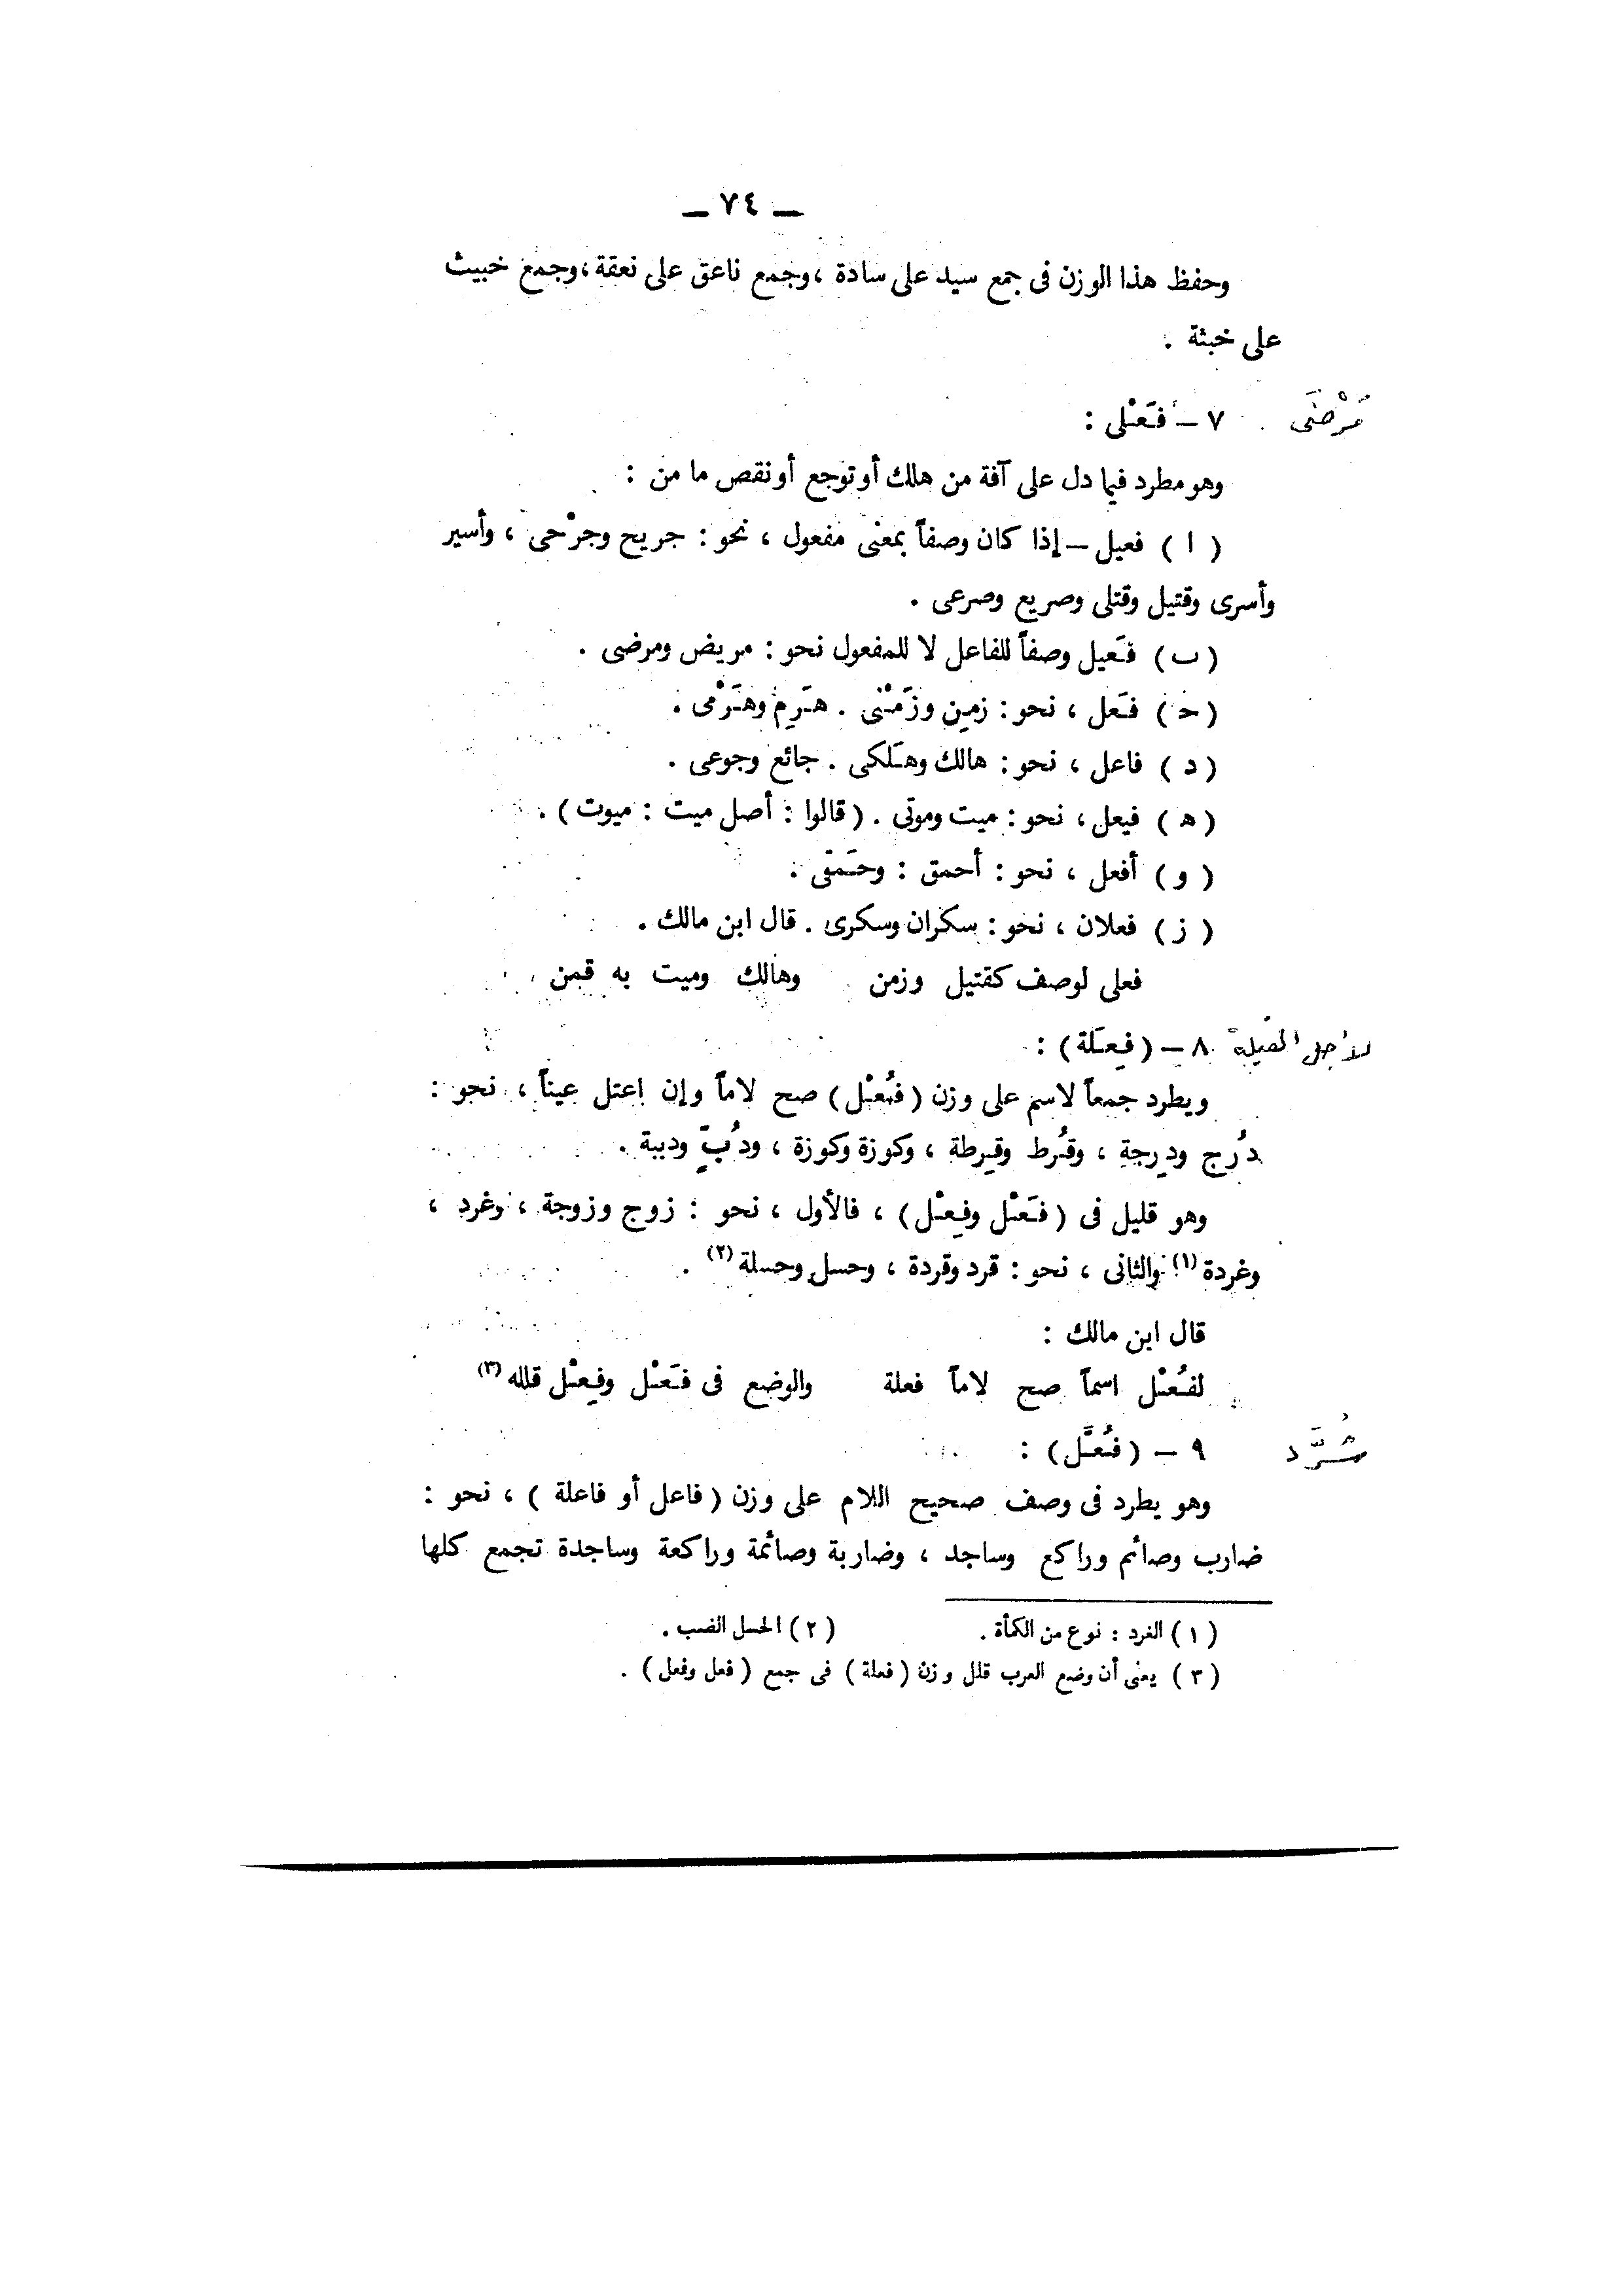 — ٧٤ —
وحفظ هذا الوزن فى جمع سيد على سادة ، وجمع ناعق على نعقة ، وجمع خبيث
على خبثة .
مَرْضَى
٧ — فَعْلى :
وهو مطرد فيما دل على آفة من هلك أو توجع أو نقص ما من :
( ا ) فعيل — إذا كان وصفاً بمعنى مفعول ، نحو : جريح وجرْحى ، وأسير
وأسرى وقتيل وقتلى وصريع وصرعى .
( ب ) فَعيل وصفاً للفاعل لا للمفعول نحو : مريض ومرضى .
( ح ) فَعل ، نحو : زمِن وزَمْنى . هَرِم وهَرْمى .
( د ) فاعل ، نحو : هالك وهَلكى . جائع وجوعى .
( ه ) فيعل ، نحو : ميت وموتى . ( قالوا : أصل ميت : ميوت ) .
( و ) أفعل ، نحو : أحمق : وحَمقى .
( ز ) فعلان ، نحو : سكران وسكرى . قال ابن مالك .
فعلى لوصف كقتيل وزمن وهالك وميت به قمن
لأجل الفيلة
٨ — ( فِعَلة ) :
ويطرد جمعاً لاسم على وزن ( فُعْل ) صح لاماً وإن اعتل عيناً ، نحو :
دُرج ودِرجة ، وقُرط وقِرطة ، وكوزة وكوزة ، ودُبّ ودببة .
وهو قليل فى ( فَعْل وفِعْل ) ، فالأول ، نحو : زوج وزوجة ، وغرد ،
وغردة (١) والثانى ، نحو : قرد وقردة ، وحسل وحسلة (٢) .
قال ابن مالك :
لفُعْل اسماً صح لاماً فعلة والوضع فى فَعْل وفِعْل قلله (٣)
شُرَّد
٩ — ( فُعَّل ) :
وهو يطرد فى وصف صحيح اللام على وزن ( فاعل أو فاعلة ) ، نحو :
ضارب وصائم وراكع وساجد ، وضاربة وصائمة وراكعة وساجدة تجمع كلها
( ١ ) الغرد : نوع من الكمأة . ( ٢ ) الحسل الضب .
( ٣ ) يعنى أن وضع العرب قلل وزن ( فعلة ) فى جمع ( فعل وفعل ) .